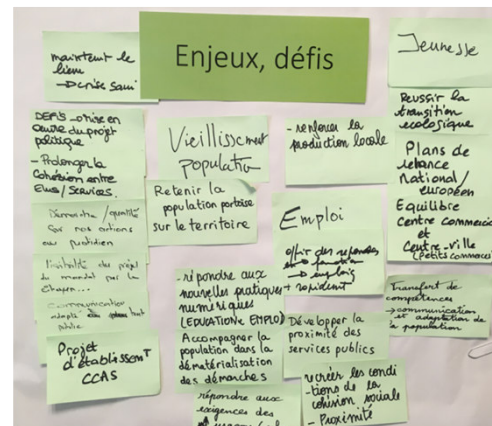 Enjeux, défis
maintient le
lien
→ Crise sani
DEFIS → mise en
œuvre du projet
politique
- Prolonger la
Cohésion entre
Elus/Services.
Démarche/qualité
sur nos actions
au quotidien
du projet
de mandat par la
communication
Projet
d'établissemT
CCAS
Vieillissement
population
Retenir la
population
sur le territoire
- répondre aux
nouvelles pratiques
numériques
(EDUCATION EMPLOI)
Accompagner la
population dans la
dématérialisation
des démarches
répondre aux
exigences des
- renforcer la
production locale
Emploi
offrir des réponses
en formation
→ emplois
+ rapident
Développer la
proximité des
services publics
recréer les condi
-tions de la
cohésion sociale
- Proximité
Jeunesse
Réussir la
transition
écologique
Plans de
relance
National/
européen
Equilibre
Centre commercial
et
Centre-ville
(Petits commerces)
Transfert de
compétences
→ communication
et adaptation de
la population